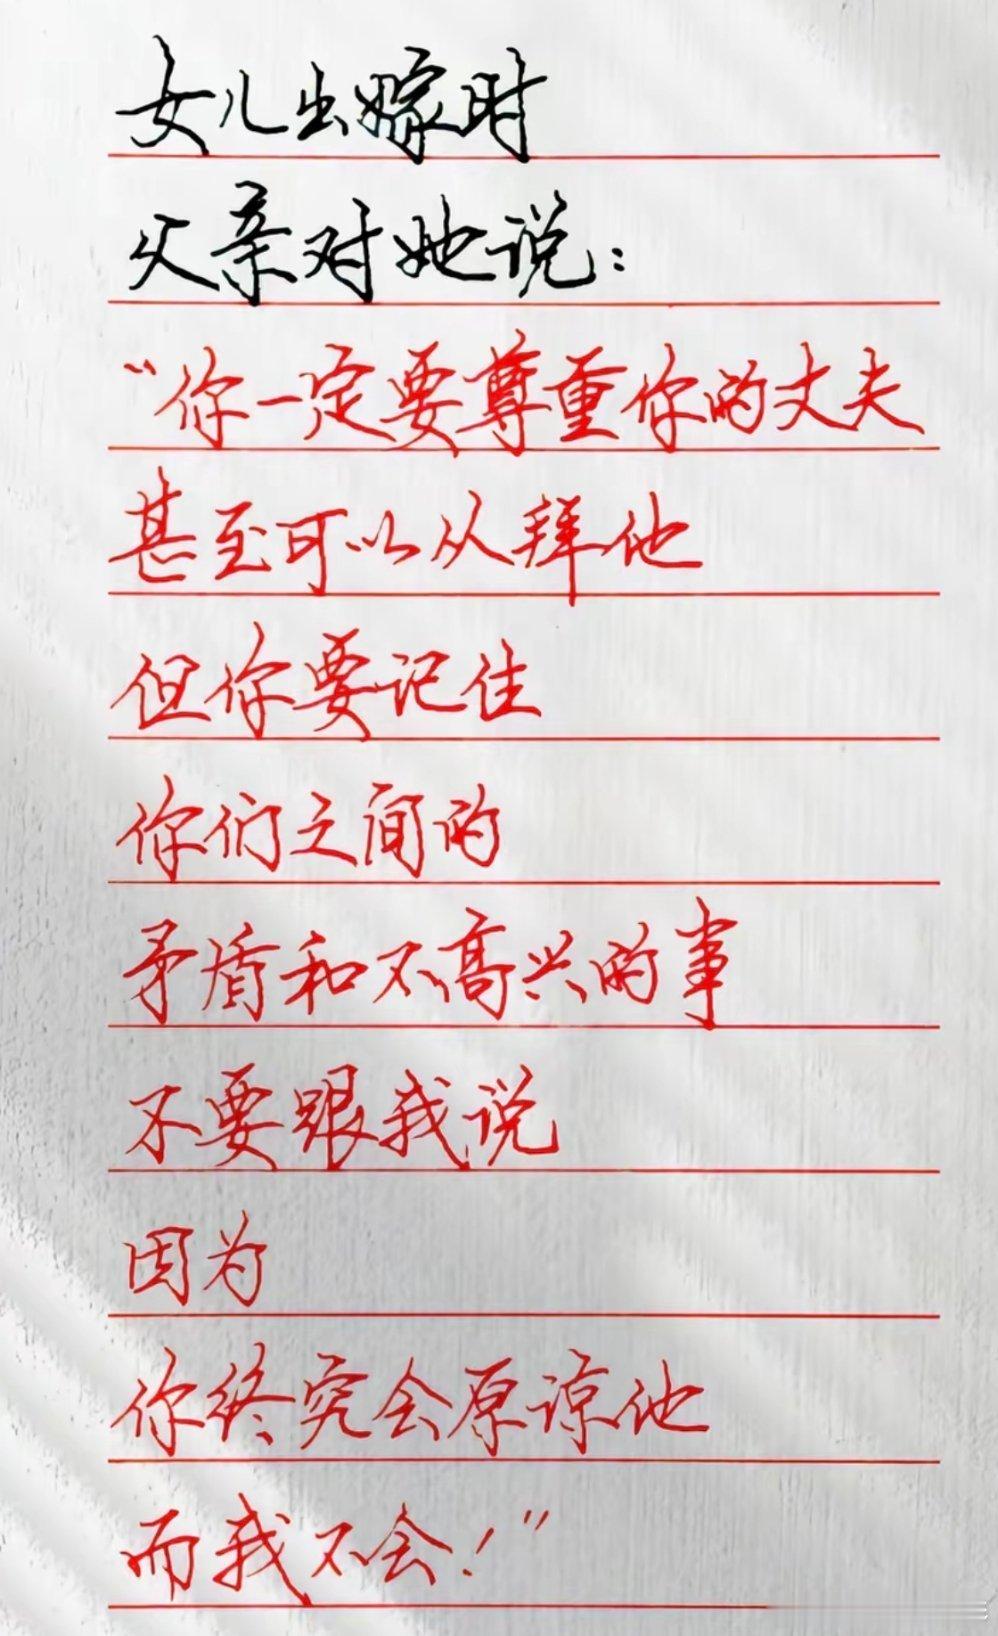 女儿出嫁时
父亲对她说：
“你一定要尊重你的丈夫
甚至可以从拜他
但你要记住
你们之间的
矛盾和不高兴的事
不要跟我说
因为
你终究会原谅他
而我不会！”